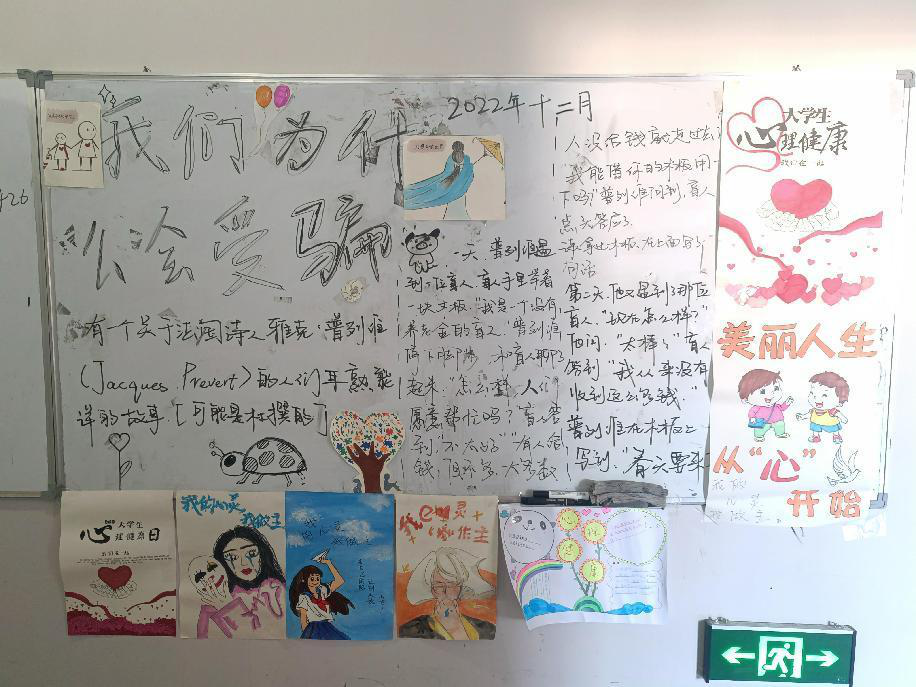 2022年十二月
我们为什
么会受骗
有一个关于法国诗人雅克·普列维
(Jacques Prevert)的人们耳熟能
详的故事[可能是杜撰的]
一天,普列维遇
到一位盲人,盲人手里举着
一块木板:"我是一个没有
养老金的盲人."普列维
停下脚步,和盲人聊了
起来,"怎么样,人们
愿意帮忙吗?"盲人答
到"不太好""有人给
钱,但不多,大多数
人没给钱就走过去了
"我能借你的木板用一
下吗"普列维问到,盲人
点头答应了
问语
第二天,他又遇到了那位
盲人,"现在怎么样?"
他问,"太棒了"盲人
答到"我从来没有
收到这么多钱."
普列维在木板上
写到,"春天要来
心
大学生
理健康
美丽人生
从"心"
开始
我的
心灵
做主
心
大学生
理健康日
我的心灵
我做主
426